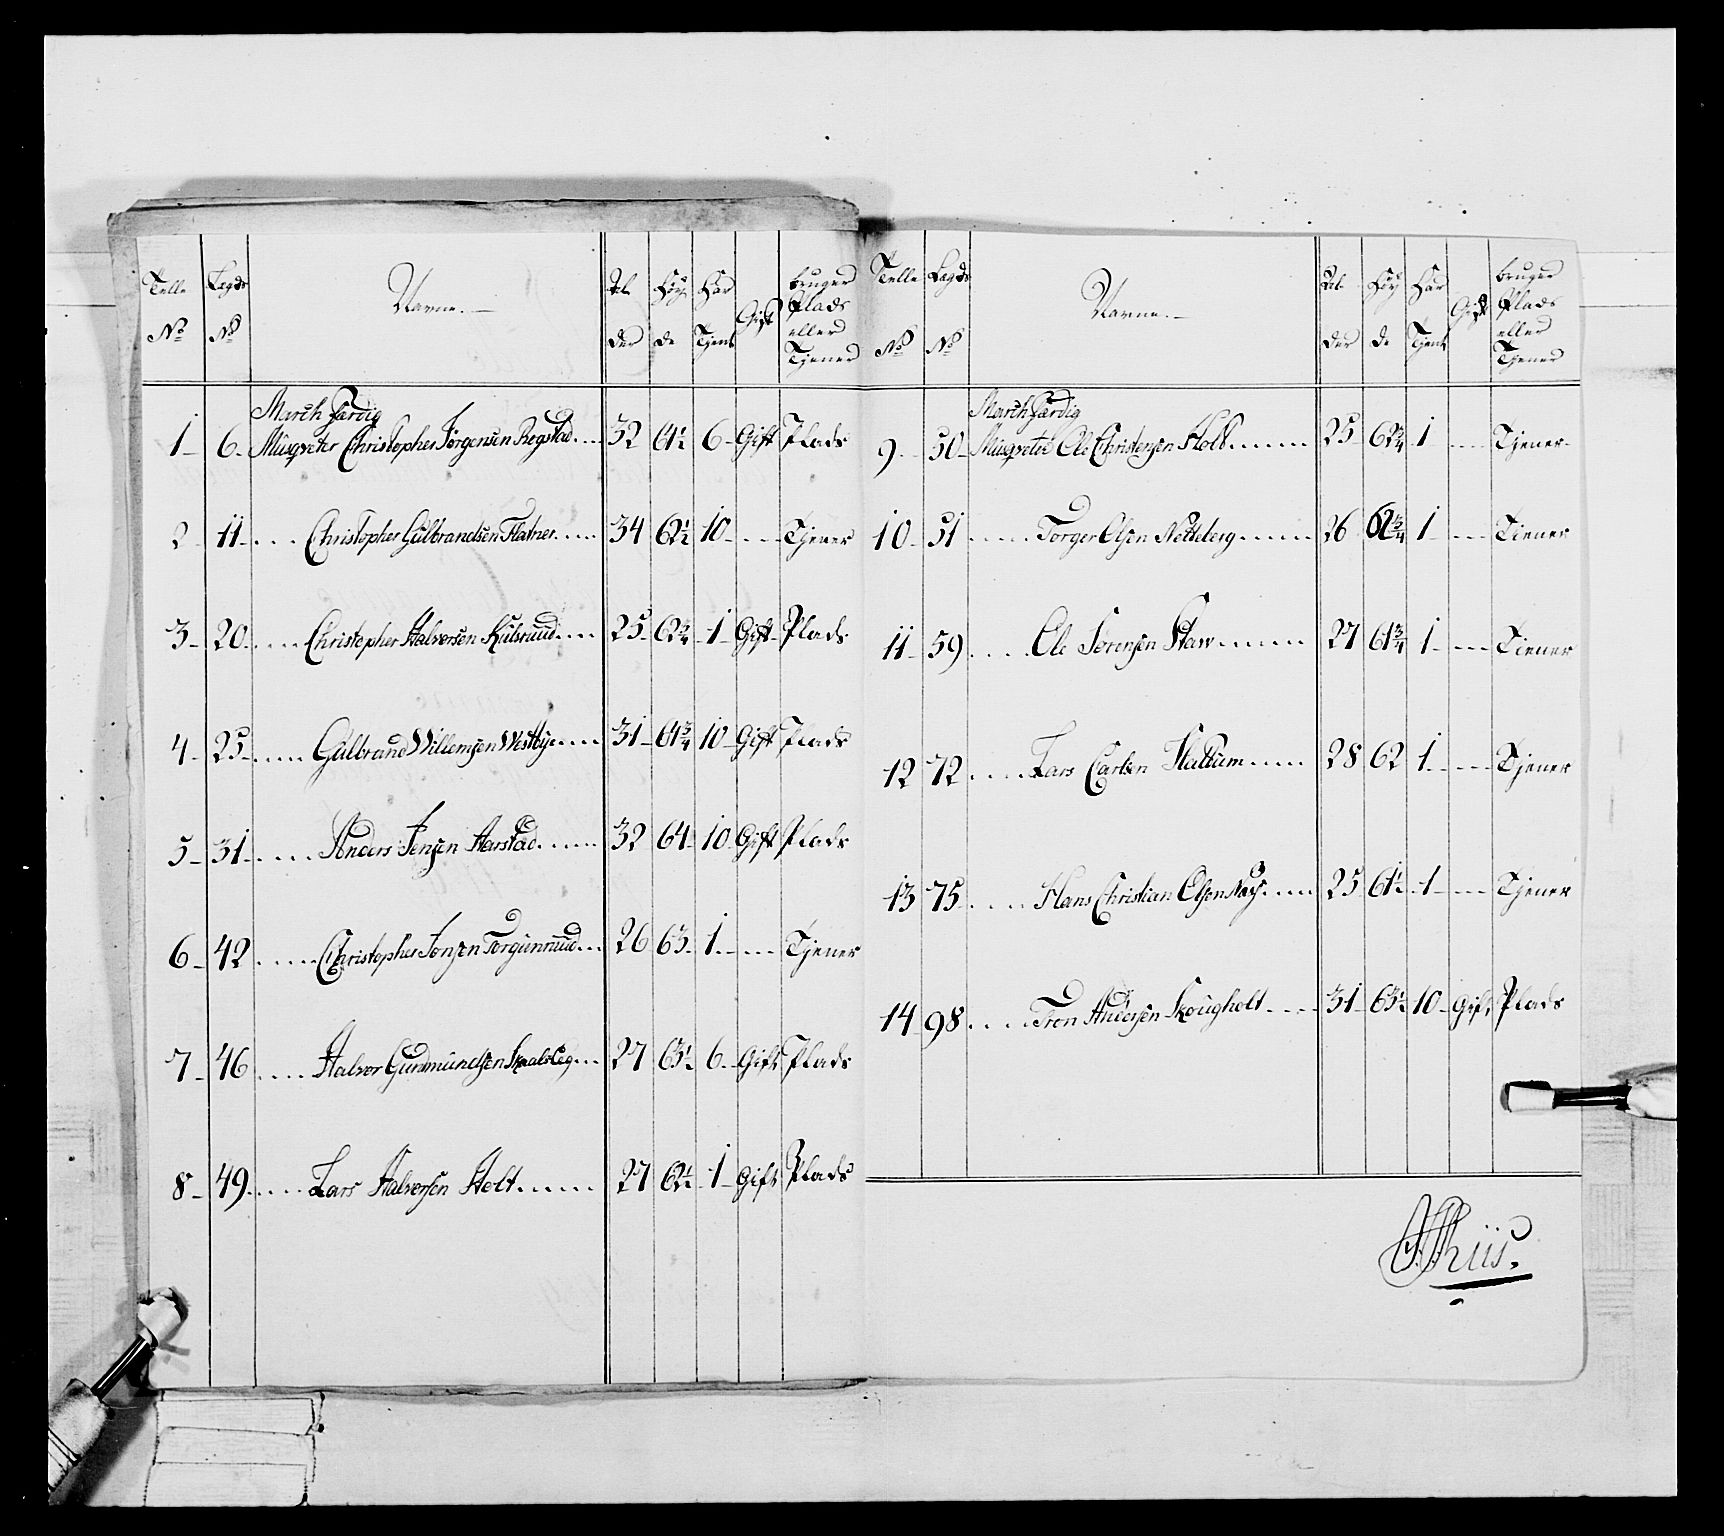 Telle No Lægds No Navne. Alder Høyde Har Tjent Gift bruger Plads eller Tjener
March færdig
1 6 Musqveter Christopher Jörgensen Rogstad 32 61½ 6 Gift Plads
2 11 Christopher Gulbrandsen Flatner 34 62½ 10 Tjener
3 20 Christopher Halvorsen Kulsruud 25 62¾ 1 Gift Plads
4 25 Gulbrand Willemsen Westbye 31 61¾ 10 Gift Plads
5 31 Anders Jensen Harstad 32 64 10 Gift Plads
6 42 Christopher Jonsen Torgunruud 26 63 1 Tjener
7 46 Halvor Gudmundsen 27 63½ 6 Gift Plads
8 49 Lars Halvorsen Holt 27 62½ 1 Gift Plads
Telle No Lægds No Navne. Alder Høyde Har Tjent Gift bruger Plads eller Tjener
March færdig
9 50 Musqveter Ole Christensen Holt 25 62¾ 1 Tjener
10 51 Torger Olsen Netteberg 26 62¾ 1 Tiener
11 59 Ole Sørensen 27 61¾ 1 Tiener
12 72 Lars Carlsen Hattum 28 62 1 Tjener
13 75 Hans Christian Olsen 25 61½ 1 Tjener
14 98 Tron Andersen Skougholt 31 63½ 10 Gift Plads
Thiis.